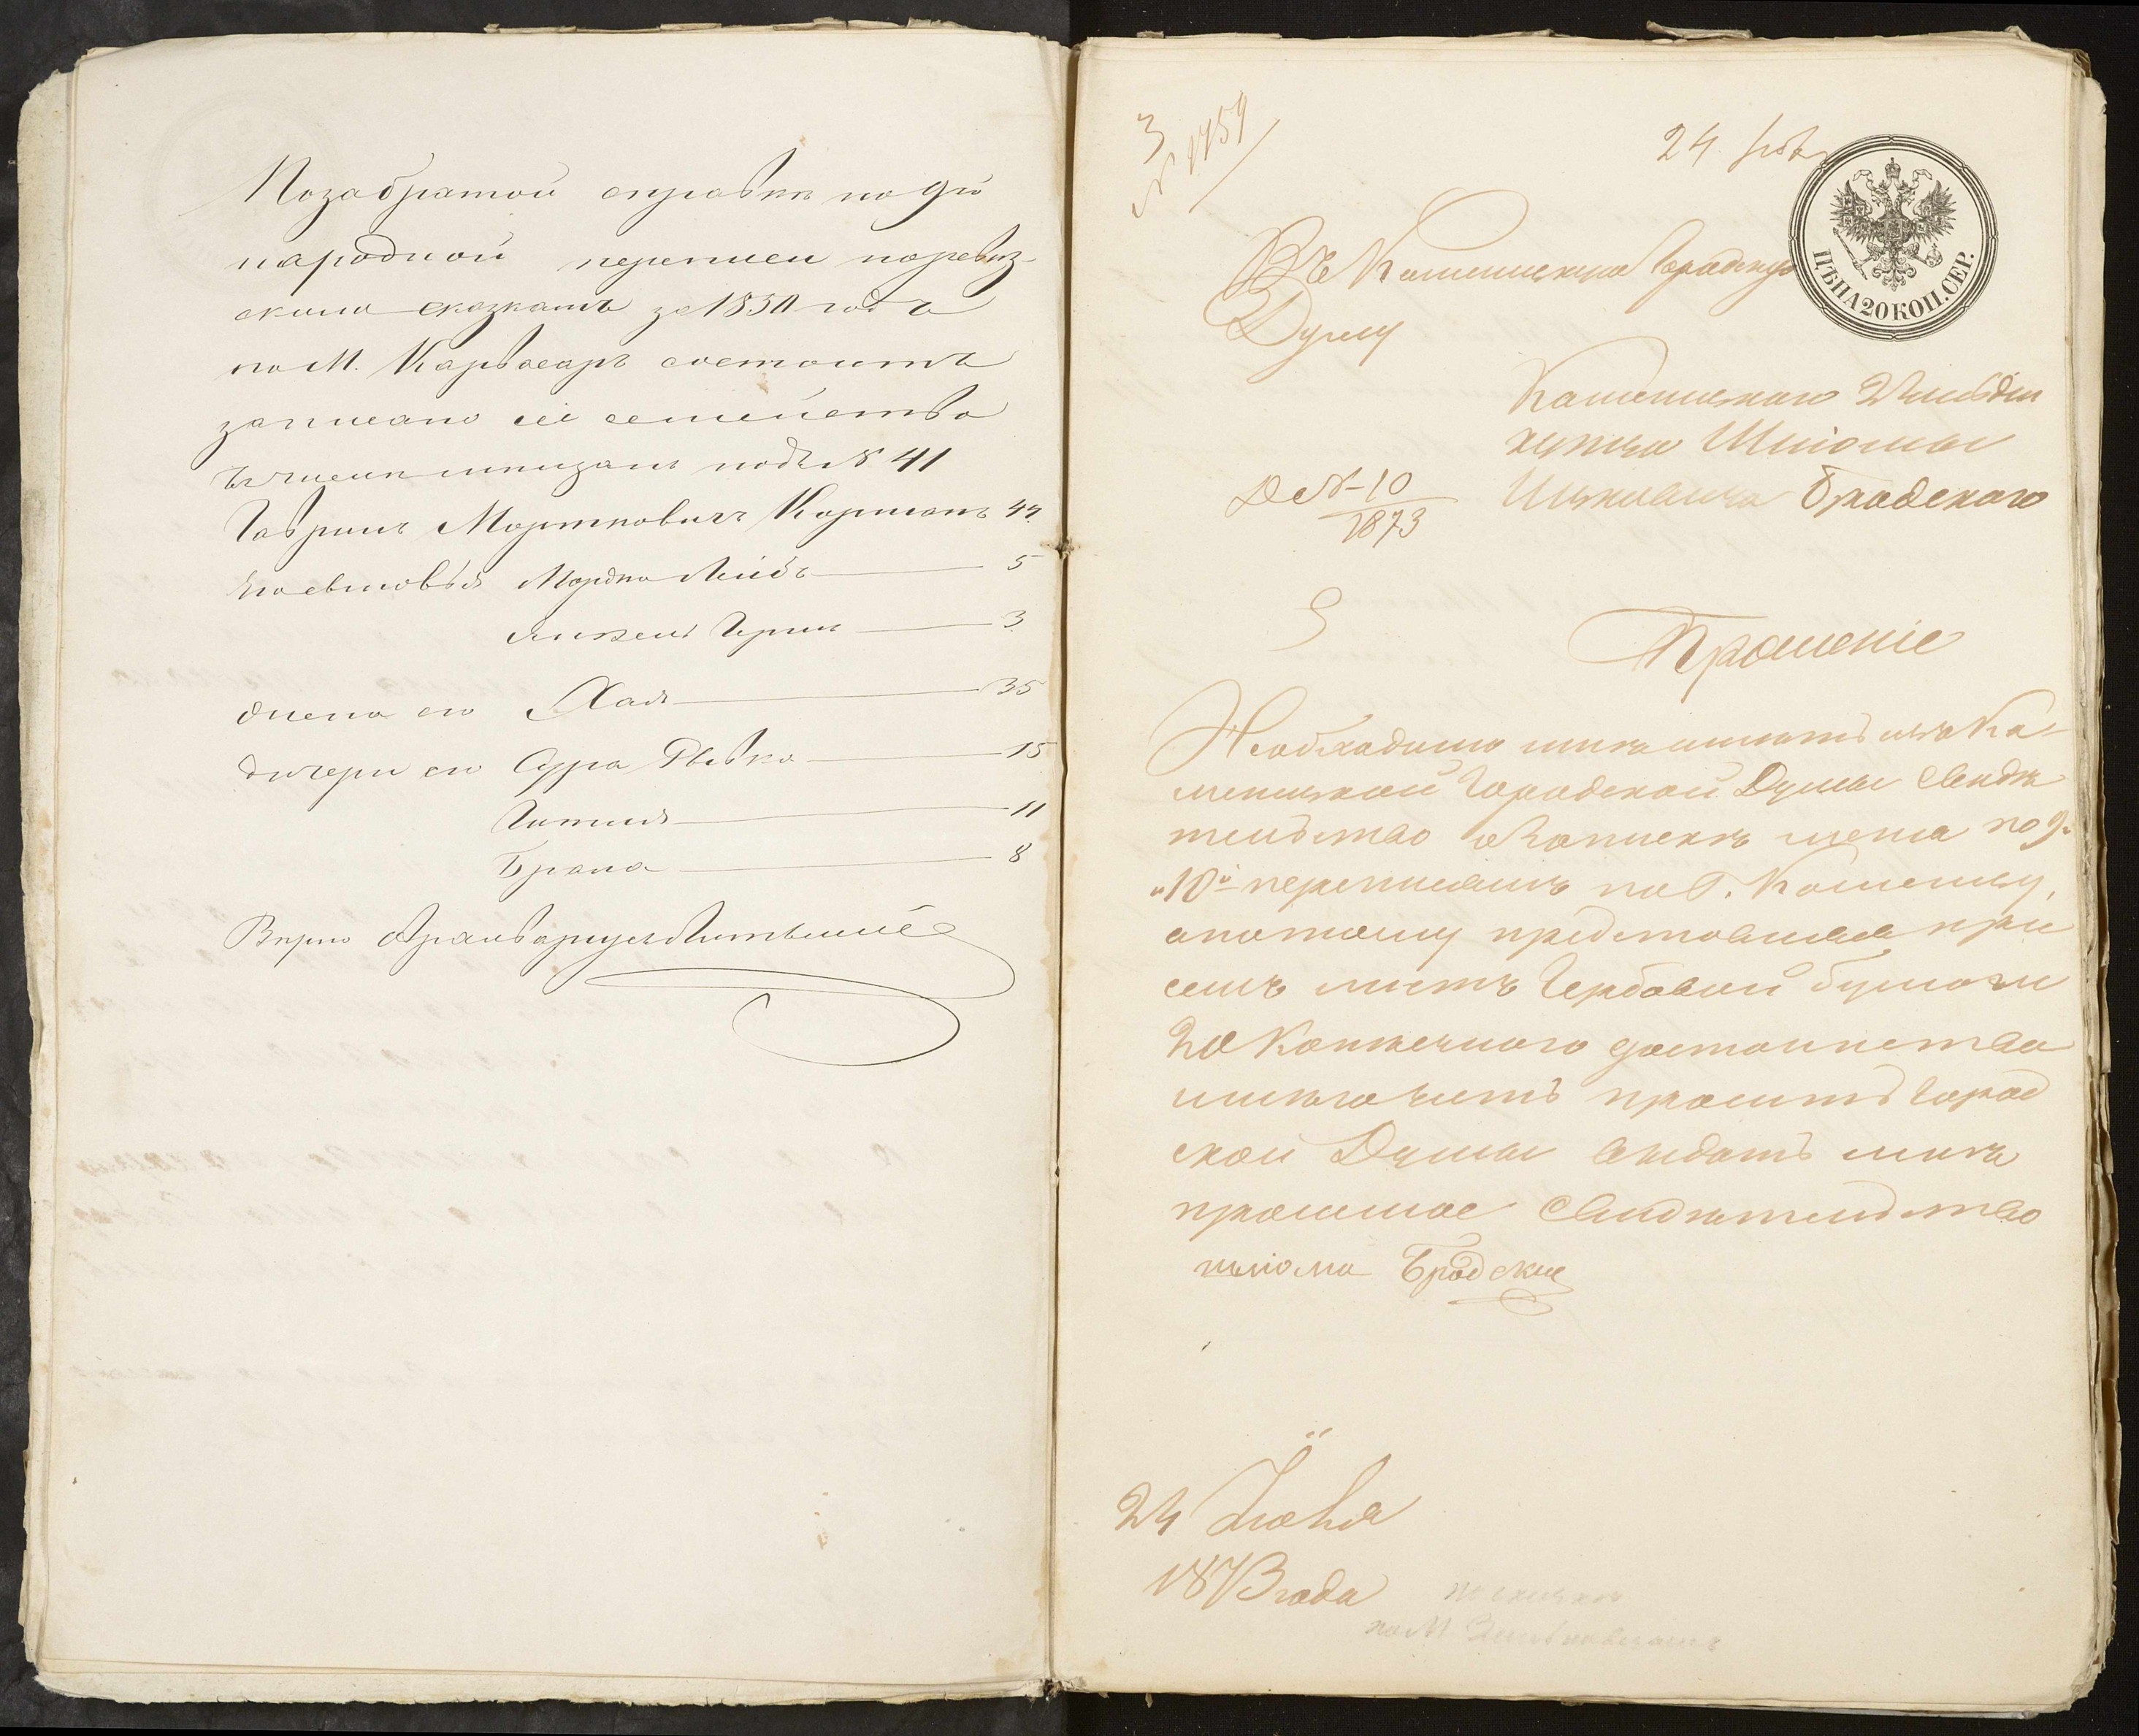 Позабратой справкѣ по 9й
народной переписи поревиз-
скимъ сказкамъ за 1850 годъ
по М. Карвасаръ состоитъ
записано сіе семейство
въ числѣ мѣщанъ подъ № 41
Гаврилъ Мортковичъ Корманъ 44
Его сыновья Мордко Лейбъ 5
Герш 3
жена его Хая 35
дочери его Сура Ривка 15
Гитля 11
Брана 8
Вѣрно
3
№ 1759
24
ЦѢНА 20 КОП. СЕР.
Въ Каменецкую Градскую
Думу
Каменецкаго
купца Шліомы
Ицковича Бродскаго
Д № 10
1873
Прошеніе
Необходимо мнѣ имѣть изъ Ка-
менецкой Городской Думы Свидѣ
тельство о запискѣ меня по 9й
и 10й переписямъ по Г. Каменцу,
а потому представляя при
семъ листъ Гербовой бумаги
20 Копѣечного достоинства
имѣю честь просить Город
ской Думы выдать мнѣ
просимое Свидѣтельство
шліома Бродскій
24 Іюня
1873 года
по М